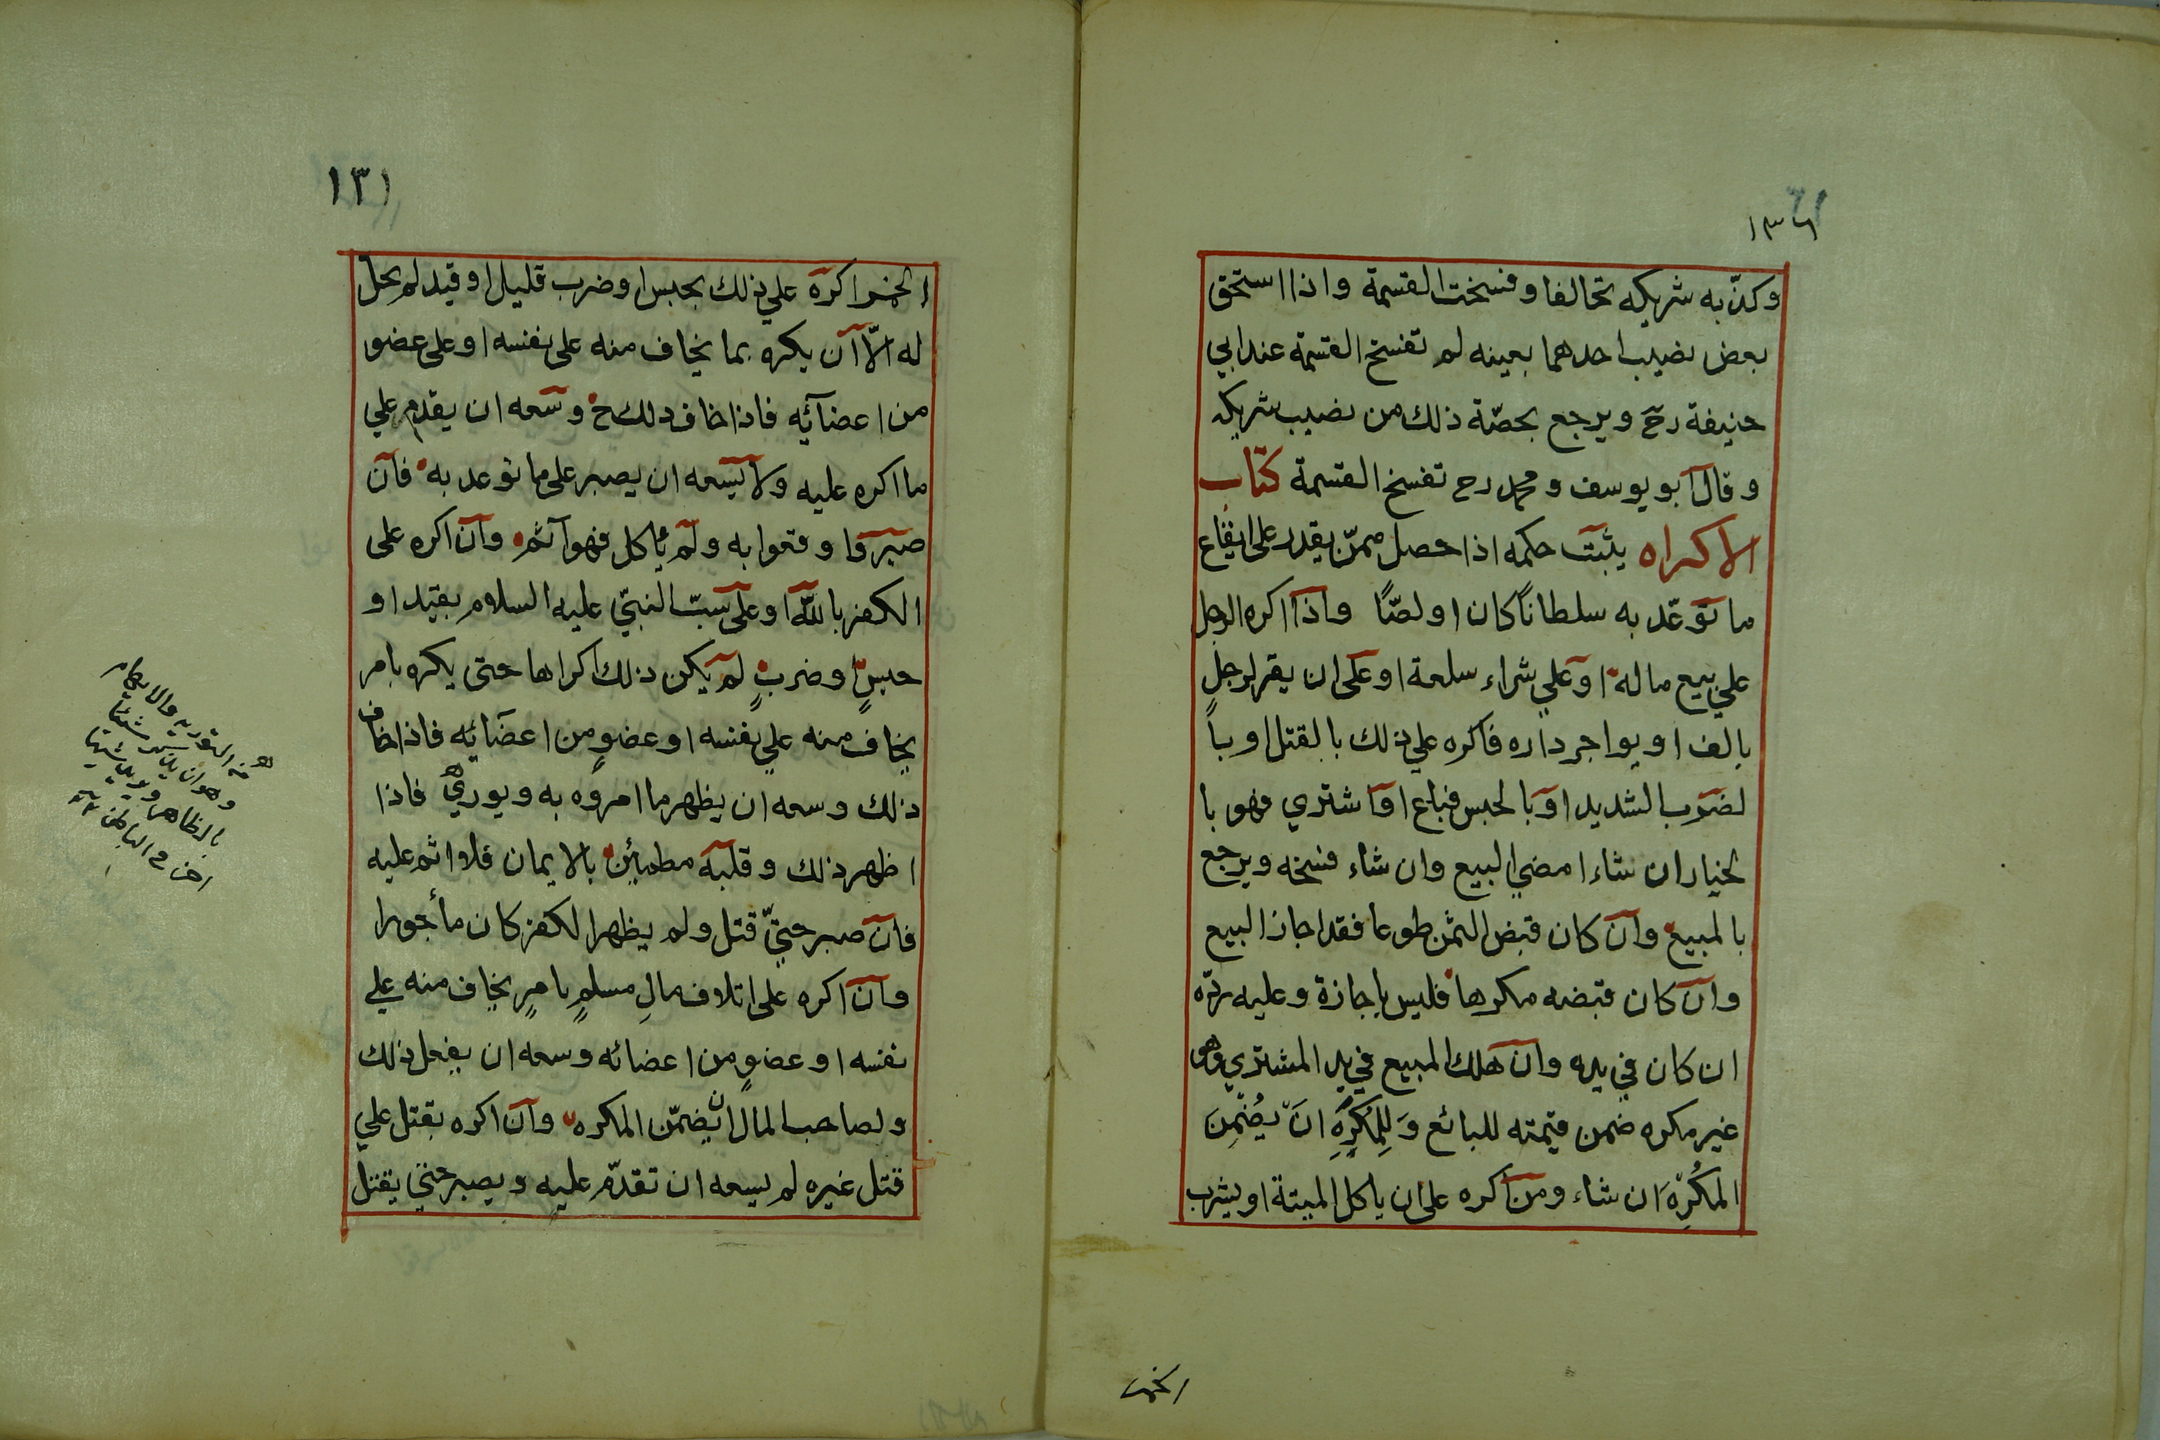 ١٣٦
وكذّبه شريكه تحالفا وفسخت القسمة واذا استحق
بعض نصيب احدهما بعينه لم تفسخ القسمة عند ابي
حنيفة رح ويرجع بحصّة ذلك من نصيب شريكه
وقال ابو يوسف ومحمد رح تفسخ القسمة كتاب
الاكراه يثبت حكمه اذا حصل ممّن يقدر على ايقاع
ما توعّد به سلطاناً كان او لصّاً واذا اكره الرجل
علي بيع ماله او علي شراء سلعة او على ان يقر لرجلٍ
بالف او يواجر داره فاكره علي ذلك بالقتل او با
لضرب الشديد او بالحبس فباع او اشتري فهو با
لخيار ان شاء امضي البيع وان شاء فسخه ويرجع
بالمبيع وان كان قبض الثمن طوعا فقد اجاز البيع
وان كان قبضه مكرها فليس باجازة وعليه ردّه
ان كان في يده وان هلك المبيع في يد المشتري وهو
غير مكره ضمن قيمته للبائع وَلِلمُكرَهِ انَ يُضَمِّنَ
المُكرِهَ ان شاء ومن اكره على ان ياكل الميتة او يشرب
الخمر
١٣١
الخمر اكره علي ذلك بحبس او ضرب قليل او قيد لم يحل
له الّا ان يكره بما يخاف منه على نفسه او على عضو
من اعضآئه فاذا خاف ذلك ح وسعه ان يقدم علي
ما اكره عليه ولا يسعه ان يصبر على ما توعد به فان
صبر وقعوا به ولم ياكل فهو آثم وان اكره على
الكفر بالله او على سبّ النبيّ عليه السلام بقيد او
حبسٍ او ضربٍ لم يكن ذلك اكراها حتى يكره بامر
يخاف منه علي نفسه او عضوٍ من اعضائه فاذا خاف
ذلك وسعه ان يظهر ما امروه به ويوري فاذا
اظهر ذلك وقلبه مطمئن بالايمان فلا اثم عليه
فان صبر حتيّ قتل ولم يظهر الكفر كان مأجورا
وان اكره على اتلاف مالِ مسلمٍ بامرٍ يخاف منه علي
نفسه او عضوٍ من اعضائه وسعه ان يفعل ذلك
ولصاحب المال ان يضمّن المكره وان اكره بقتل علي
قتل غيره لم يسعه ان تقدّم عليه ويصبر حتي يقتل
من التورية والايهام
وهو ان يريد شيئا
بالظاهر ويريد شيئا
اخر في الباطن